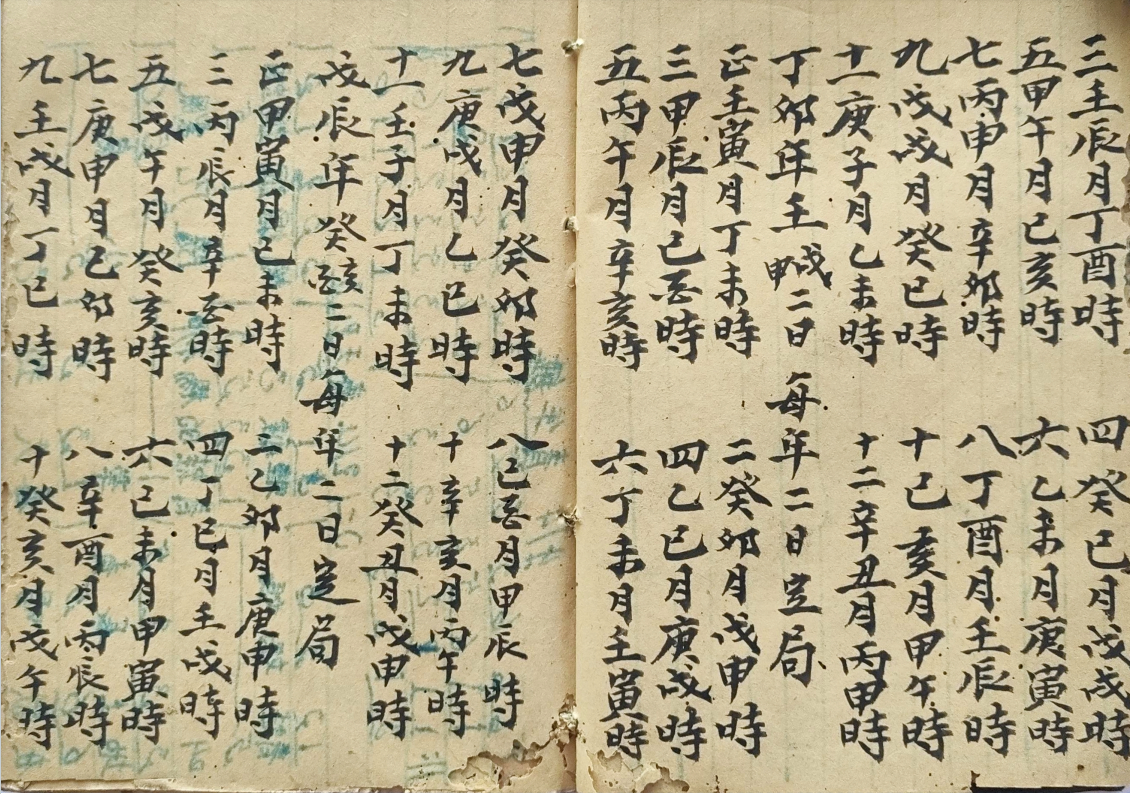 三壬辰月丁酉時 四癸巳月戊戌時
五甲午月己亥時 六乙未月庚寅時
七丙申月辛卯時 八丁酉月壬辰時
九戊戌月癸巳時 十己亥月甲午時
十一庚子月乙未時 十二辛丑月丙申時
丁卯年壬申戌二日每年二日定局
正壬寅月丁未時 二癸卯月戊申時
三甲辰月己酉時 四乙巳月庚戌時
五丙午月辛亥時 六丁未月壬寅時
七戊申月癸卯時 八己酉月甲辰時
九庚戌月乙巳時 十辛亥月丙午時
十一壬子月丁未時 十二癸丑月戊申時
戊辰年癸酉亥二日每年二日定局
正甲寅月己未時 二乙卯月庚申時
三丙辰月辛酉時 四丁巳月壬戌時
五戊午月癸亥時 六己未月甲寅時
七庚申月乙卯時 八辛酉月丙辰時
九壬戌月丁巳時 十癸亥月戊午時